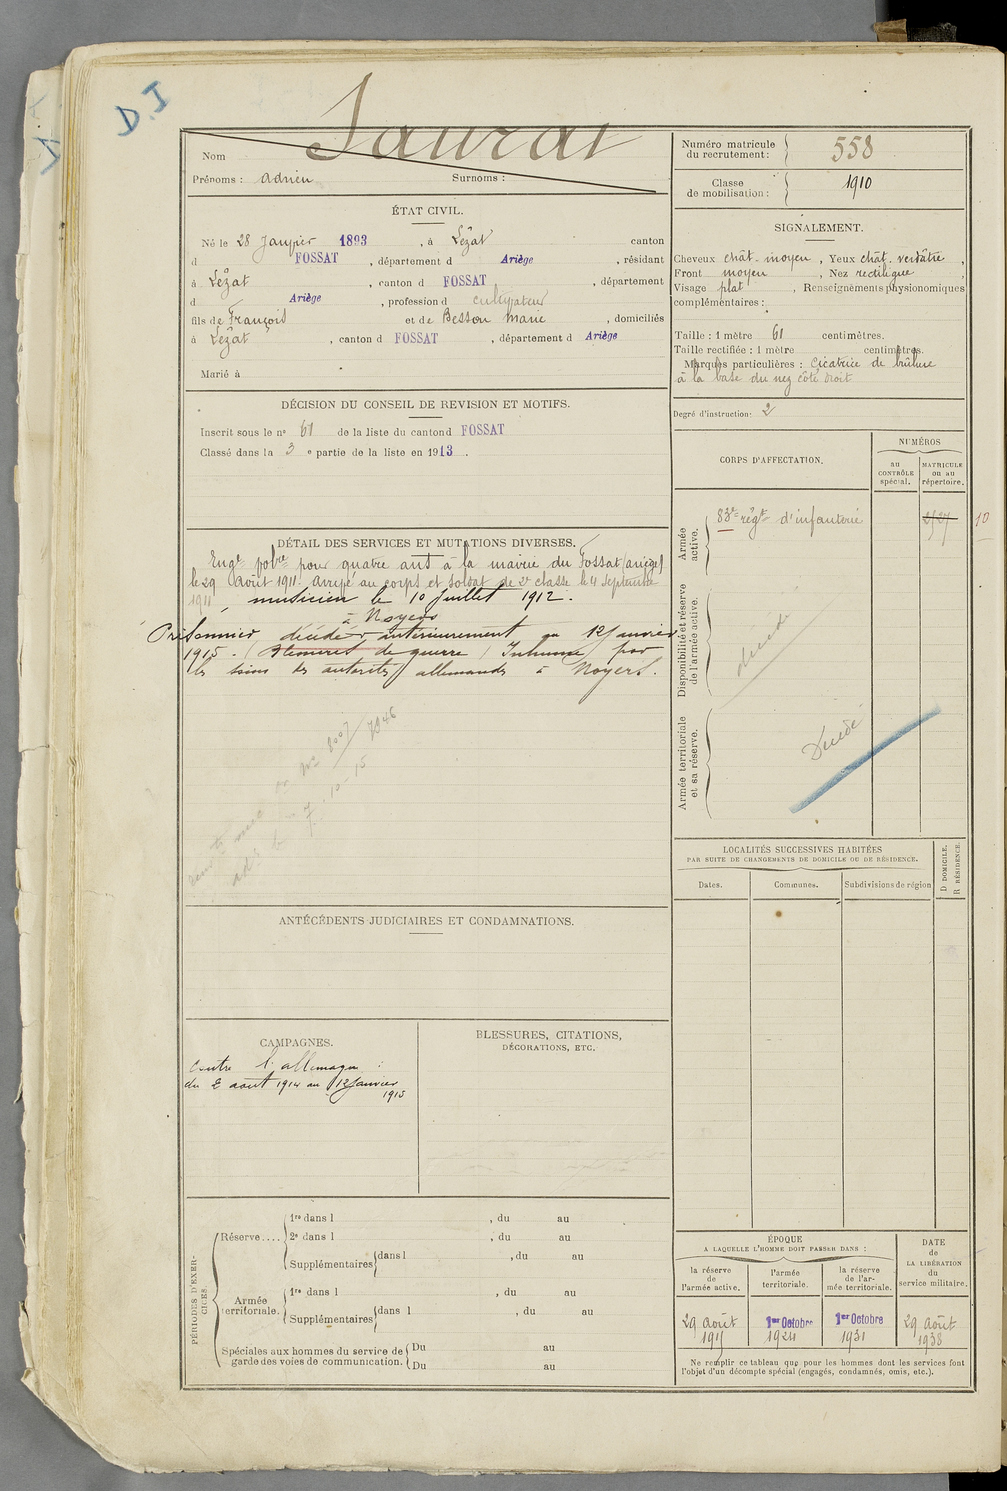 D.I
Nom Saurat
Prénoms : Adrien Surnoms :
Numéro matricule du recrutement : 558
Classe de mobilisation : 1910
ÉTAT CIVIL.
Né le 28 Janvier 1893, à Lézat canton
d FOSSAT, département d Ariège, résidant
à Lézat, canton d FOSSAT, département
d Ariège, profession d cultivateur
fils de François et de Besson Marie, domiciliés
à Lézat, canton d FOSSAT, département d Ariège
Marié à
SIGNALEMENT.
Cheveux chât. moyen, Yeux chât. verdâtre,
Front moyen, Nez rectiligne,
Visage plat, Renseignements physionomiques
complémentaires :
Taille : 1 mètre 61 centimètres.
Taille rectifiée : 1 mètre centimètres.
Marques particulières : Cicatrice de brûlure
à la base du nez côté droit
Degré d'instruction : 2
DÉCISION DU CONSEIL DE REVISION ET MOTIFS.
Inscrit sous le nº 61 de la liste du canton d FOSSAT
Classé dans la 3 e partie de la liste en 1913.
CORPS D'AFFECTATION.
NUMÉROS
au CONTRÔLE spécial.
MATRICULE ou au répertoire.
Armée active.
83e régt d'infanterie
10
Disponibilité et réserve de l'armée active.
décédé
Armée territoriale et sa réserve.
Décédé
DÉTAIL DES SERVICES ET MUTATIONS DIVERSES.
Engé volre pour quatre ans à la mairie du Fossat (ariège)
le 29 Août 1911. Arrivé au corps et soldat de 2e classe le 4 Septembre
1911, musicien le 10 Juillet 1912.
à Noyers
Prisonnier décédé antérieurement au 12 Janvier
1915. (Blessures de guerre) Inhumé par
les soins des autorités allemandes à Noyers.
7 - 10 - 15
LOCALITÉS SUCCESSIVES HABITÉES
PAR SUITE DE CHANGEMENTS DE DOMICILE OU DE RÉSIDENCE.
D DOMICILE.
R RÉSIDENCE.
Dates.
Communes.
Subdivisions de région
ANTÉCÉDENTS JUDICIAIRES ET CONDAMNATIONS.
CAMPAGNES.
Contre l'allemagne :
du 2 aout 1914 au 12 Janvier
1915
BLESSURES, CITATIONS,
DÉCORATIONS, ETC.
PÉRIODES D'EXERCICES.
Réserve....
1re dans l , du au
2e dans l , du au
Supplémentaires dans l , du au
Armée territoriale.
1re dans l , du au
Supplémentaires dans l , du au
Spéciales aux hommes du service de garde des voies de communication.
Du au
Du au
ÉPOQUE
A LAQUELLE L'HOMME DOIT PASSER DANS :
la réserve de l'armée active.
l'armée territoriale.
la réserve de l'armée territoriale.
DATE de LA LIBÉRATION du service militaire.
29 Août 1915
1er Octobre 1924
1er Octobre 1931
29 Août 1938
Ne remplir ce tableau que pour les hommes dont les services font
l'objet d'un décompte spécial (engagés, condamnés, omis, etc.).